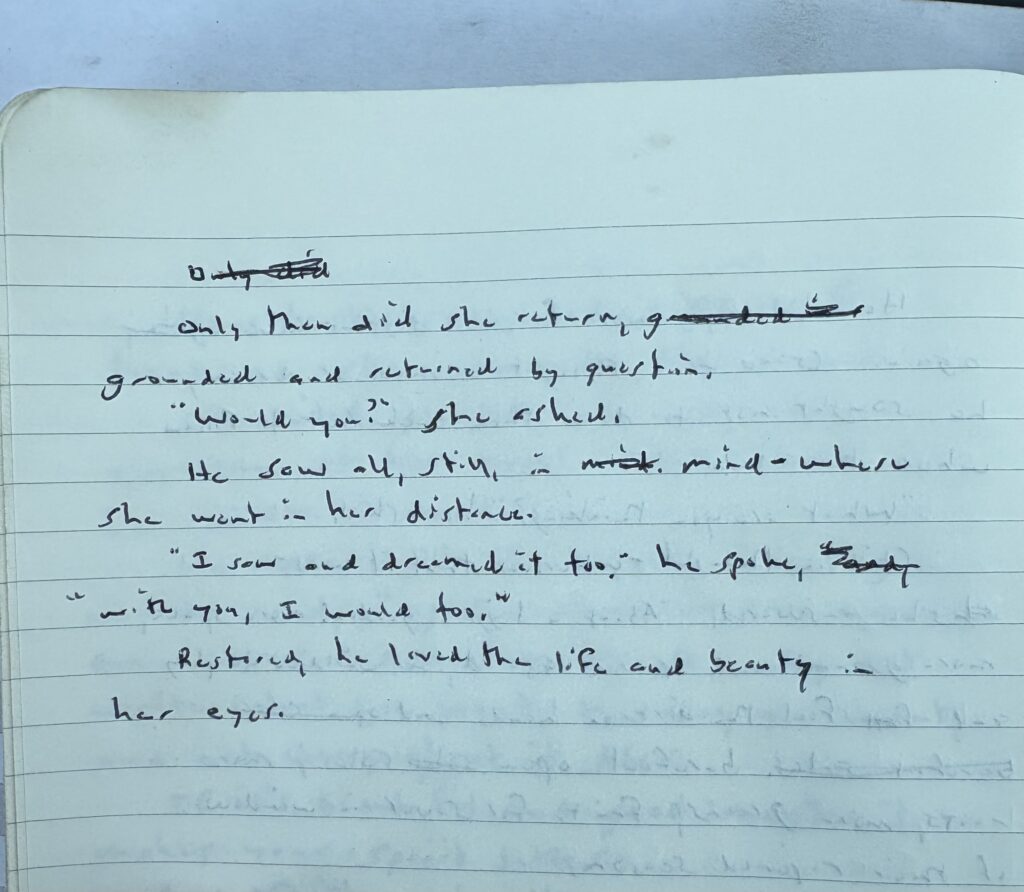 Only did
Only then did she return, grounded in
grounded and returned by question.
"Would you?" she asked.
He saw all, still, in mist. mind - where
she went in her distance.
"I saw and dreamed it too." he spoke,
"with you, I would too."
Restored, he loved the life and beauty in
her eyes.